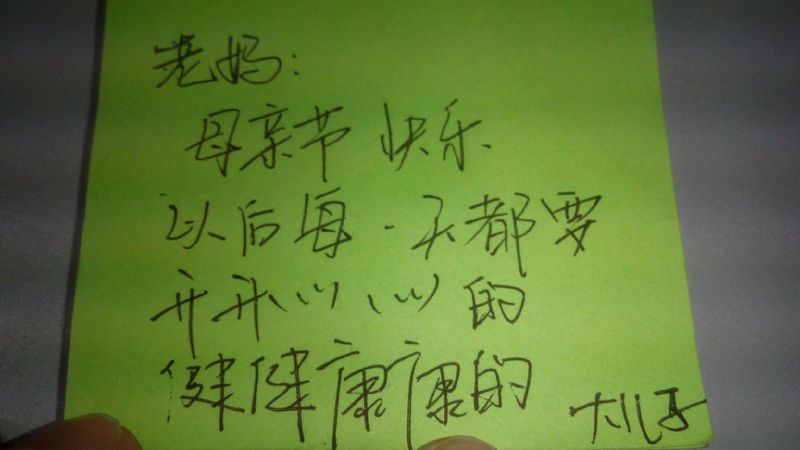 老妈:
母亲节快乐
以后每一天都要
开开心心的
健健康康的
大儿子